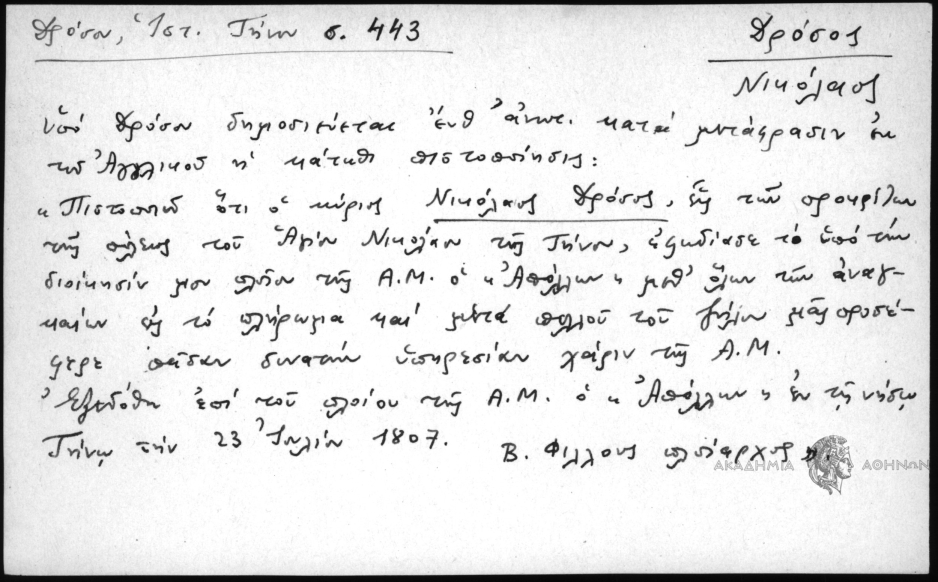 Δρόσου, Ἱστ. Τήνου σ. 443
Δρόσος
Νικόλαος
Ὑπό Δρόσου δημοσιεύεται ἐνθ' ἀνωτ. κατά μετάφρασιν ἐκ
τοῦ Ἀγγλικοῦ ἡ κάτωθι πιστοποίησις:
«Πιστοποιῶ ὅτι ὁ κύριος Νικόλαος Δρόσος, εἷς τῶν προκρίτων
τῆς πόλεως τοῦ Ἁγίου Νικολάου τῆς Τήνου, ἐφωδίασε τό ὑπό τήν
διοίκησίν μου πλοῖον τῆς Α.Μ. ὁ «Ἀπόλλων» μεθ' ὅλων τῶν ἀναγ-
καίων εἰς τό πλήρωμα καί μετά πολλοῦ τοῦ ζήλου μᾶς προσέ-
φερε πᾶσαν δυνατήν ὑπηρεσίαν χάριν τῆς Α.Μ.
Ἐξεδόθη ἐπί τοῦ πλοίου τῆς Α.Μ. ὁ «Ἀπόλλων» ἐν τῇ νήσῳ
Τήνῳ τήν 23 Ἰουλίου 1807. Β. Φίλλους πλοίαρχος».
ΑΚΑΔΗΜΙΑ ΑΘΗΝΩΝ